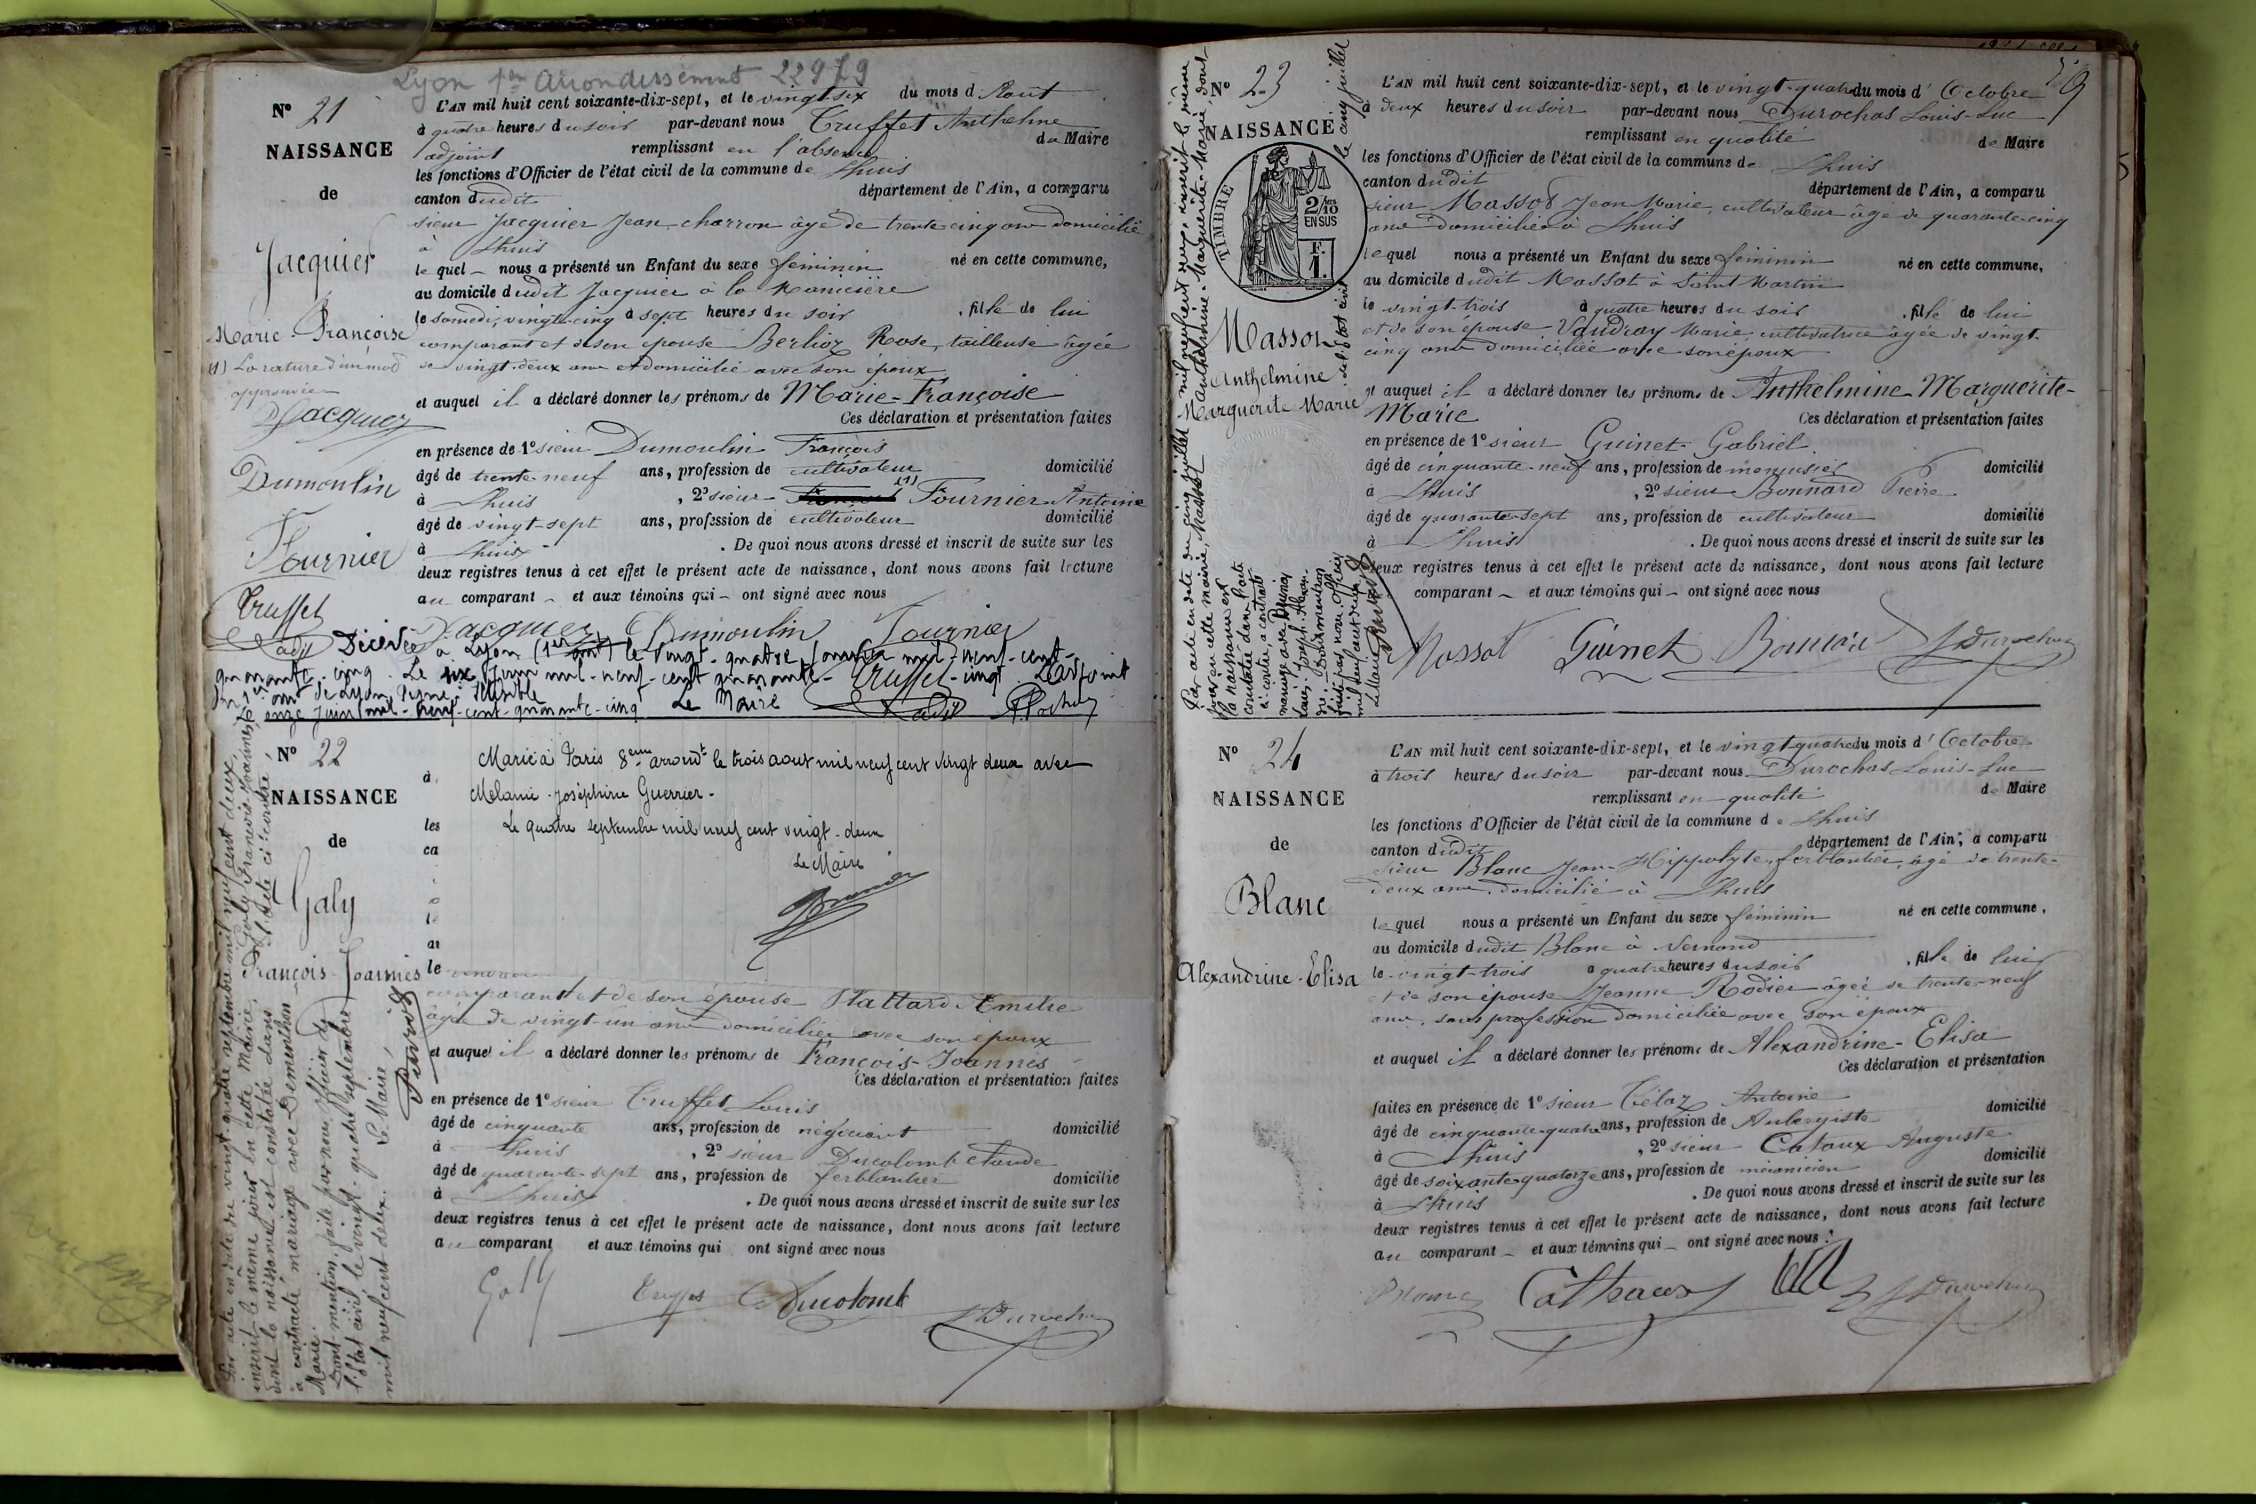 Lyon 1er Arrondissement 22979
N° 21
NAISSANCE
de
Jacquier
Marie-Françoise
(1) La rature d'un mot
approuvée
Jacquier
Dumoulin
Fournier
Truffet
L'AN mil huit cent soixante-dix-sept, et le vingt-six du mois d'Aout
à quatre heures du soir par-devant nous Truffet Anthelme
adjoint remplissant en l'absence du Maire
les fonctions d'Officier de l'état civil de la commune de Lhuis
canton dudit département de l'Ain, a comparu
sieur Jacquier Jean, charron âgé de trente cinq ans domicilié
à Lhuis
lequel nous a présenté un Enfant du sexe féminin né en cette commune,
au domicile dudit Jacquier à la
le samedi, vingt-cinq à sept heures du soir, fille de lui
comparant et de son épouse Berlioz Rose, tailleuse âgée
de vingt-deux ans et domicilié avec son époux
et auquel il a déclaré donner les prénoms de Marie-Françoise
Ces déclaration et présentation faites
en présence de 1° sieur Dumoulin François
âgé de trente-neuf ans, profession de cultivateur domicilié
à Lhuis, 2° sieur (1) Fournier Antoine
âgé de vingt-sept ans, profession de cultivateur domicilié
à Lhuis. De quoi nous avons dressé et inscrit de suite sur les
deux registres tenus à cet effet le présent acte de naissance, dont nous avons fait lecture
au comparant et aux témoins qui ont signé avec nous
Jacquier Dumoulin Fournier
Décédée à Lyon (1er arrt) le vingt-quatre janvier mil-neuf-cent-
quarante-cinq. Le six Juin mil-neuf-cent quarante-cinq. L'adjoint
Truffet
du 1er arrt de Lyon, signé: illisible
Le onze Juin mil-neuf-cent-quarante-cinq Le Maire
N° 22
NAISSANCE
de
Galy
François-Joannès
Marié à Paris 8eme arrondt le trois aout mil neuf cent vingt deux avec
Mélanie Joséphine Guerrier.
Le quatre septembre mil neuf cent vingt-deux
Le Maire
à
les
ca
le
au
le
comparant et de son épouse Hattard Emilie
âgée de vingt-un ans domiciliée avec son époux
et auquel il a déclaré donner les prénoms de François-Joannès
Ces déclaration et présentation faites
en présence de 1° sieur Truffet Louis
âgé de cinquante ans, profession de négociant domicilié
à Lhuis, 2° sieur Ducolomb Claude
âgé de quarante-sept ans, profession de ferblantier domicilié
à Lhuis. De quoi nous avons dressé et inscrit de suite sur les
deux registres tenus à cet effet le présent acte de naissance, dont nous avons fait lecture
au comparant et aux témoins qui ont signé avec nous
Galy Truffet Ducolomb Durochas
Par acte en date du vingt-quatre septembre mil neuf cent deux,
inscrit le même jour en cette Mairie, Galy François-Joannès,
dont la naissance est constatée dans l'acte ci-contre,
a contracté mariage avec Dementhon
Marie.
Dont mention, faite par nous, officier de
l'état civil, le vingt-quatre septembre
mil neuf cent deux. Le Maire,
N° 23
NAISSANCE
TIMBRE
2/10
EN SUS
F.
1.
Massot
Anthelmine
Marguerite Marie
Par acte en date du cinq juillet mil neuf cent deux, inscrit le même
jour en cette mairie, Massot Anthelmine-Marguerite-Marie dont
la naissance est
constatée dans l'acte
ci-contre, a contracté
mariage avec
Louis-Joseph-Alexan-
dre. Dont mention
faite par nous officier
de l'état civil le cinq juillet
mil neuf cent deux
Le Maire
L'AN mil huit cent soixante-dix-sept, et le vingt-quatre du mois d'Octobre
à deux heures du soir par-devant nous Durochas Louis-Luc
remplissant en qualité de Maire
les fonctions d'Officier de l'état civil de la commune de Lhuis
canton dudit département de l'Ain, a comparu
sieur Massot Jean Marie, cultivateur âgé de quarante-cinq
ans domicilié à Lhuis
lequel nous a présenté un Enfant du sexe féminin né en cette commune,
au domicile dudit Massot à Saint Martin
le vingt-trois à quatre heures du soir, fille de lui
et de son épouse Vaudray Marie, cultivatrice âgée de vingt-
cinq ans domiciliée avec son époux
et auquel il a déclaré donner les prénoms de Anthelmine Marguerite-
Marie Ces déclaration et présentation faites
en présence de 1° sieur Guinet Gabriel
âgé de cinquante-neuf ans, profession de menuisier domicilié
à Lhuis, 2° sieur Bonnard Pierre
âgé de quarante-sept ans, profession de cultivateur domicilié
à Lhuis. De quoi nous avons dressé et inscrit de suite sur les
deux registres tenus à cet effet le présent acte de naissance, dont nous avons fait lecture
comparant et aux témoins qui ont signé avec nous
Massot Guinet Bonnard Durochas
N° 24
NAISSANCE
de
Blanc
Alexandrine-Elisa
L'AN mil huit cent soixante-dix-sept, et le vingt-quatre du mois d'Octobre
à trois heures du soir par-devant nous Durochas Louis-Luc
remplissant en qualité de Maire
les fonctions d'Officier de l'état civil de la commune de Lhuis
canton dudit département de l'Ain, a comparu
sieur Blanc Jean-Hippolyte, ferblantier, âgé de trente-
deux ans, domicilié à Lhuis
lequel nous a présenté un Enfant du sexe féminin né en cette commune,
au domicile dudit Blanc à
le vingt-trois à quatre heures du soir, fille de lui
et de son épouse Jeanne Rodier âgée de trente-neuf
ans, sans profession domiciliée avec son époux
et auquel il a déclaré donner les prénoms de Alexandrine-Elisa
Ces déclaration et présentation
faites en présence de 1° sieur Télaz Antoine
âgé de cinquante-quatre ans, profession de Aubergiste domicilié
à Lhuis, 2° sieur Cataux Auguste
âgé de soixante-quatorze ans, profession de mécanicien domicilié
à Lhuis. De quoi nous avons dressé et inscrit de suite sur les
deux registres tenus à cet effet le présent acte de naissance, dont nous avons fait lecture
au comparant et aux témoins qui ont signé avec nous.
Blanc Durochas